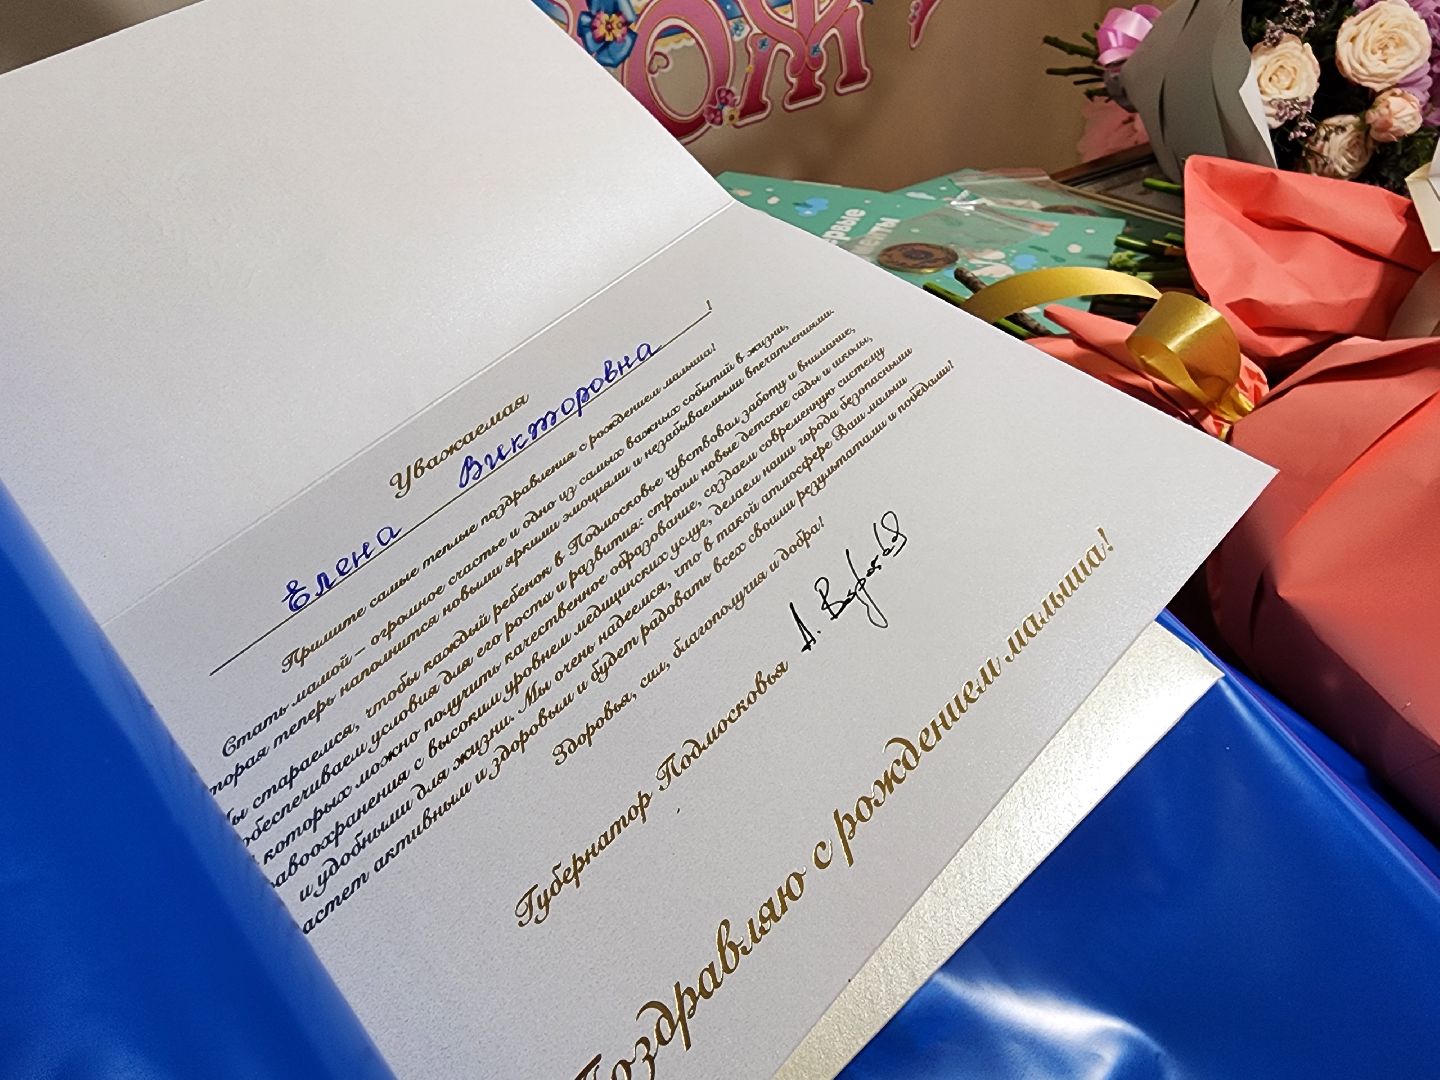 ОЖ
рвые
Уважаемая
Елена Викторовна !
Примите самые теплые поздравления с рождением малыша!
Стать мамой – огромное счастье и одно из самых важных событий в жизни,
торая теперь наполнится новыми яркими эмоциями и незабываемыми впечатлениями.
ы стараемся, чтобы каждый ребенок в Подмосковье чувствовал заботу и внимание,
обеспечиваем условия для его роста и развития: строим новые детские сады и школы,
которых можно получить качественное образование, создаем современную систему
авоохранения с высоким уровнем медицинских услуг, делаем наши города безопасными
и удобными для жизни. Мы очень надеемся, что в такой атмосфере Ваш малыш
астет активным и здоровым и будет радовать всех своими результатами и победами!
Здоровья, сил, благополучия и добра!
Губернатор Подмосковья
Поздравляю с рождением малыша!